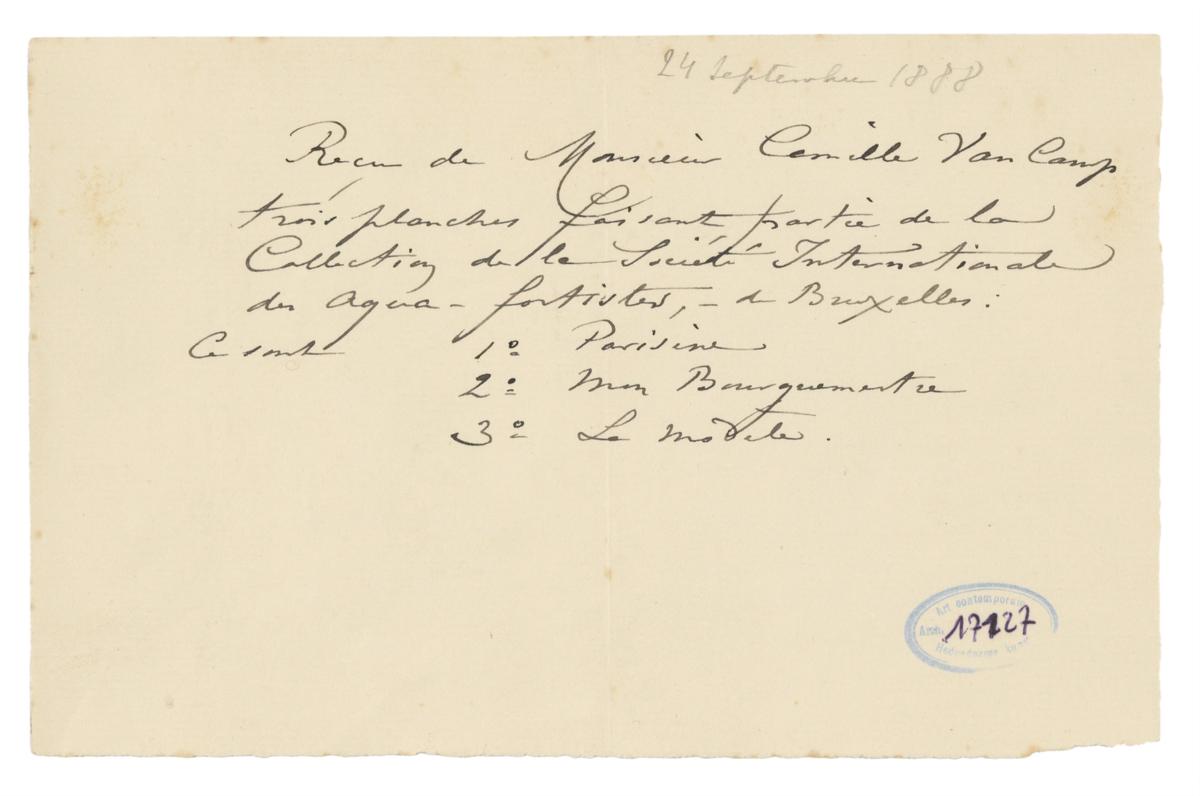 24 Septembre 1888
Reçu de Monsieur Camille Van Camp
trois planches faisant partie de la
Collection de la Société Internationale
des Aqua-fortistes, - de Bruxelles :
Ce sont 1º Parisine
2º Mon Bourguemestre
3º Le modèle.
Art contemporain
Arch. 17127
Hedendaagse kunst